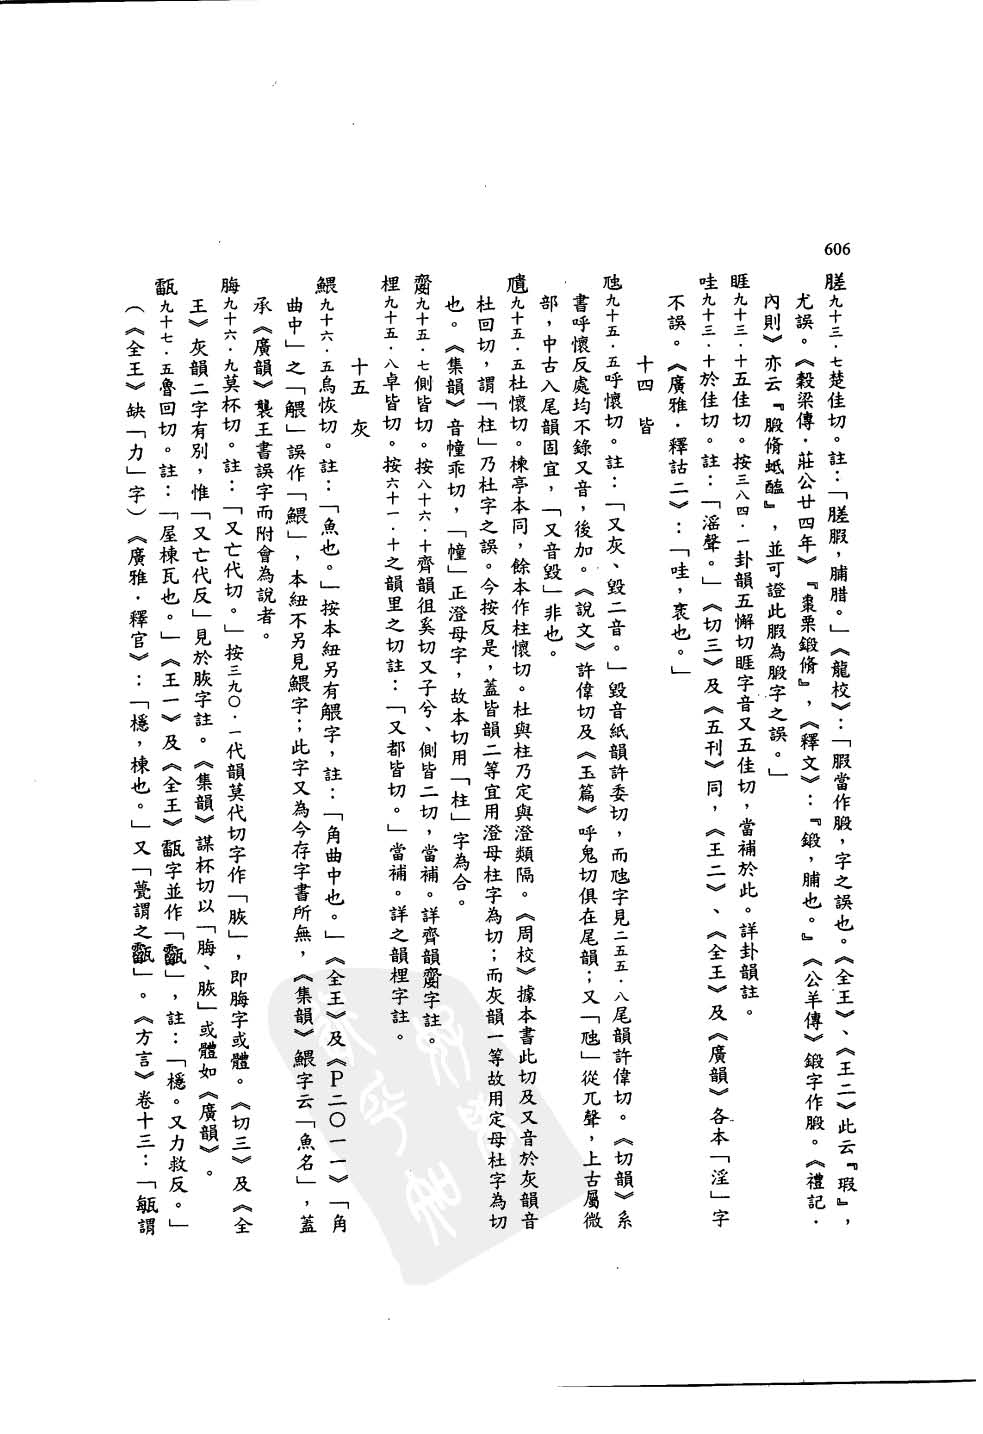 606
膗九十三．七楚佳切。註：「膗腵，脯腊。」《龍校》：「腵當作腶，字之誤也。《全王》、《王二》此云『瑕』，
尤誤。《穀梁傳．莊公廿四年》『棗栗鍛脩』，《釋文》：『鍛，脯也。』《公羊傳》鍛字作腶。《禮記．
內則》亦云『腶脩蚳醢』，並可證此腵為腶字之誤。」
睚九十三．十五佳切。按三八四．一卦韻五懈切睚字音又五佳切，當補於此。詳卦韻註。
哇九十三．十於佳切。註：「滛聲。」《切三》及《五刊》同，《王二》、《全王》及《廣韻》各本「淫」字
不誤。《廣雅．釋詁二》：「哇，衺也。」
十四　皆
虺九十五．五呼懷切。註：「又灰、毀二音。」毀音紙韻許委切，而虺字見二五五．八尾韻許偉切。《切韻》系
書呼懷反處均不錄又音，後加。《說文》許偉切及《玉篇》呼鬼切俱在尾韻；又「虺」從兀聲，上古屬微
部，中古入尾韻固宜，「又音毀」非也。
九十五．五杜懷切。楝亭本同，餘本作柱懷切。杜與柱乃定與澄類隔。《周校》據本書此切及又音於灰韻音
杜回切，謂「柱」乃杜字之誤。今按反是，蓋皆韻二等宜用澄母柱字為切；而灰韻一等故用定母杜字為切
也。《集韻》音幢乖切，「幢」正澄母字，故本切用「柱」字為合。
齌九十五．七側皆切。按八十六．十齊韻徂奚切又子兮、側皆二切，當補。詳齊韻齌字註。
桯九十五．八卓皆切。按六十一．十之韻里之切註：「又都皆切。」當補。詳之韻桯字註。
十五　灰
鰃九十六．五烏恢切。註：「魚也。」按本紐另有䚈字，註：「角曲中也。」《全王》及《P二〇一一》「角
曲中」之「䚈」誤作「鰃」，本紐不另見鰃字；此字又為今存字書所無，《集韻》鰃字云「魚名」，蓋
承《廣韻》襲王書誤字而附會為說者。
脢九十六．九莫杯切。註：「又亡代切。」按三九〇．一代韻莫代切字作「䏨」，即脢字或體。《切三》及《全
王》灰韻二字有別，惟「又亡代反」見於䏨字註。《集韻》謀杯切以「脢、䏨」或體如《廣韻》。
九十七．五魯回切。註：「屋棟瓦也。」《王一》及《全王》字並作「」，註：「檼。又力救反。」
（《全王》缺「力」字）《廣雅．釋宮》：「檼，棟也。」又「甍謂之」。《方言》卷十三：「謂